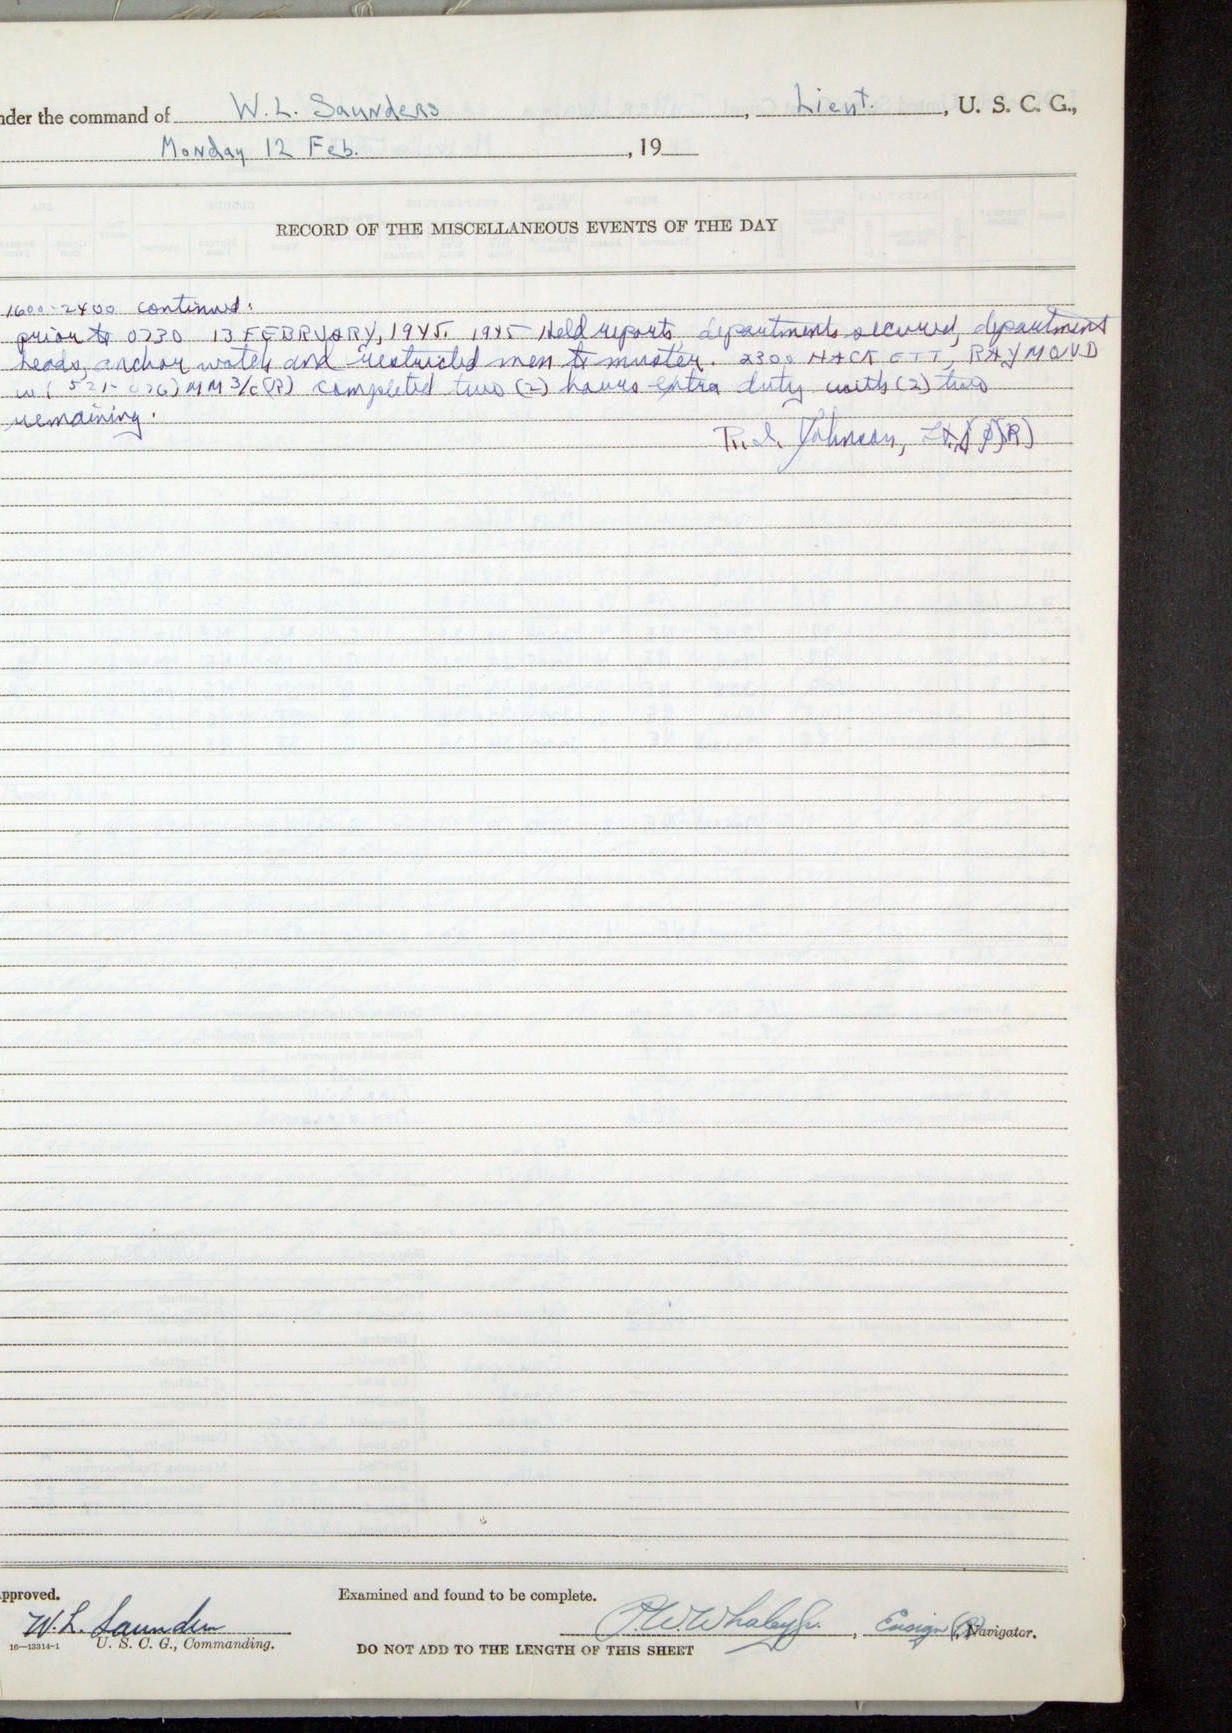 nder the command of W. L. Saunders, Lieut., U. S. C. G.,
Monday 12 Feb., 19
RECORD OF THE MISCELLANEOUS EVENTS OF THE DAY
1600-2400 continued:
prior to 0730 13 FEBRUARY, 1945. 1945 Held reports, departments secured, department
heads, anchor watch and restricted men to muster. 2300 HACKETT, RAYMOND
W (521-026) MM3/c(R) completed two (2) hours extra duty with (2) two
remaining.
R. I. Johnson, Lt.(jg)(R)
pproved. Examined and found to be complete.
W. L. Saunders P.W. Whaley Jr., Ensign (R), Navigator.
16—13314-1 U. S. C. G., Commanding.
DO NOT ADD TO THE LENGTH OF THIS SHEET